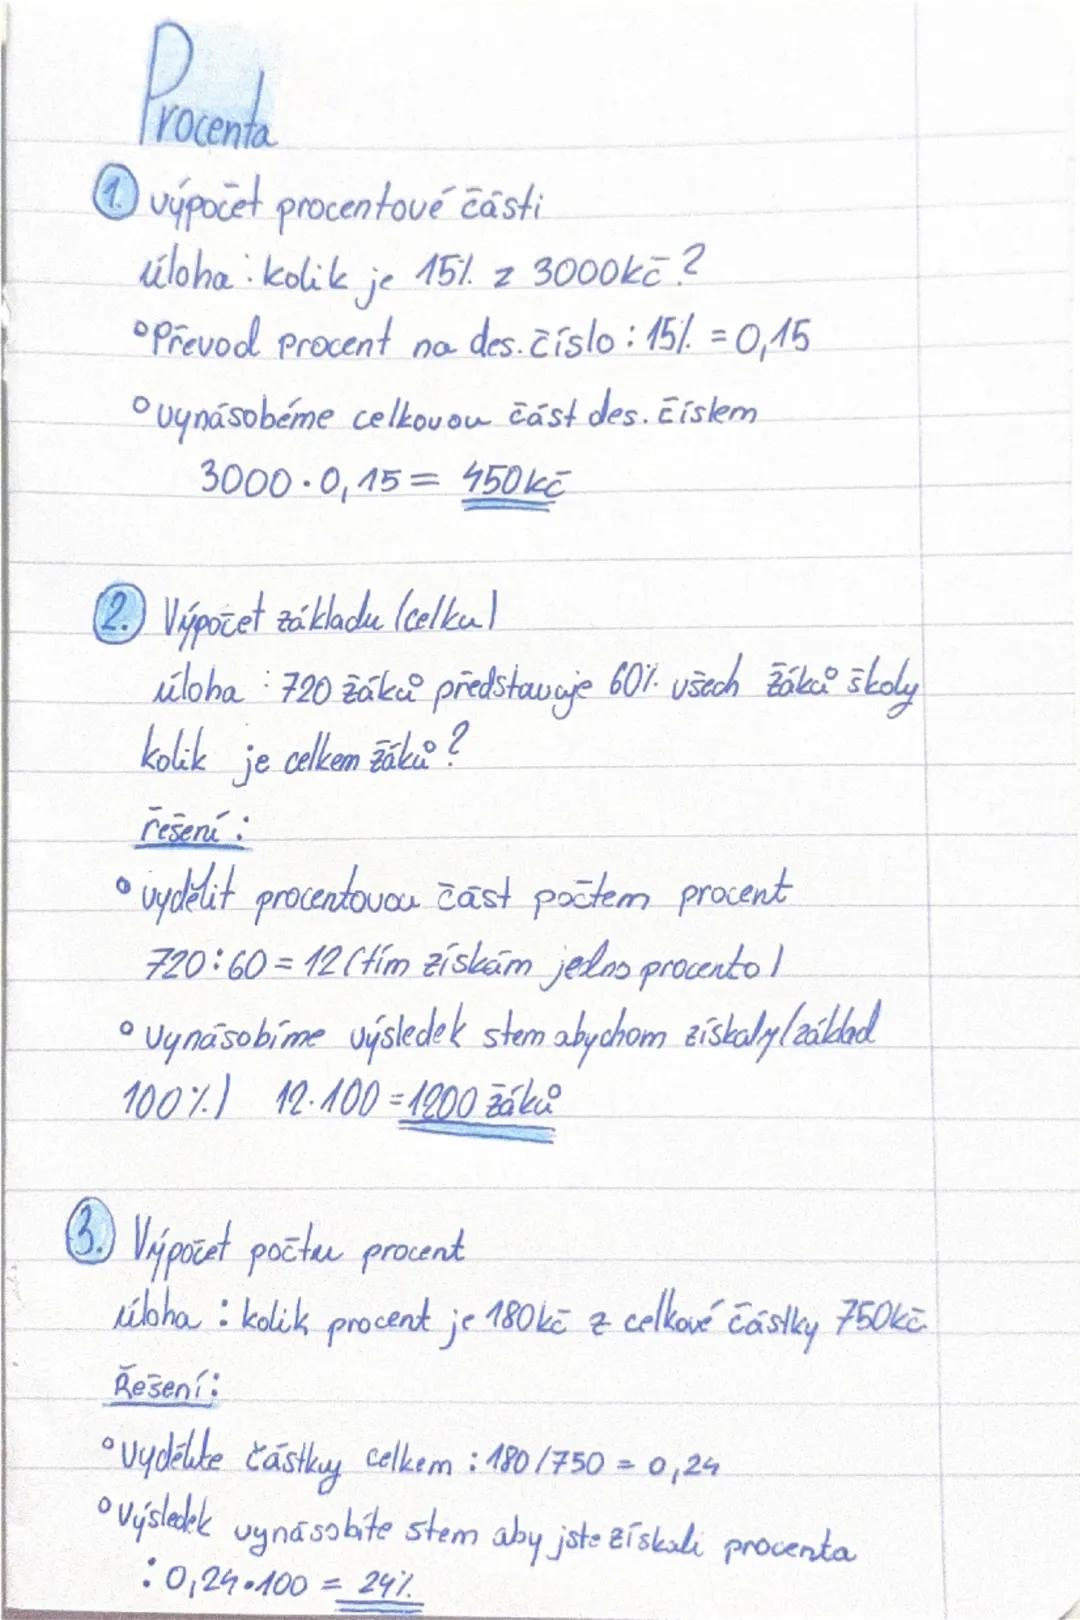 Procenta
1. výpočet procentové části
úloha : kolik je 15% z 3000kč ?
° Převod procent na des. číslo : 15% = 0,15
° vynásobéme celkovou část des. číslem
3000 · 0,15 = 450kč
2. Výpočet základu (celku)
úloha : 720 žáků představuje 60% všech žáků školy
kolik je celkem žáků ?
řešení :
° vydělit procentovou část počtem procent
720 : 60 = 12 (tím získám jedno procento)
° Vynásobíme výsledek stem abychom získaly (základ
100%) 12 · 100 = 1200 žáků
3. Výpočet počtu procent
úloha : kolik procent je 180kč z celkové částky 750kč
Řešení :
° Vydělite částky celkem : 180 / 750 = 0,24
° Výsledek vynásobite stem aby jste získali procenta
: 0,24 · 100 = 24%